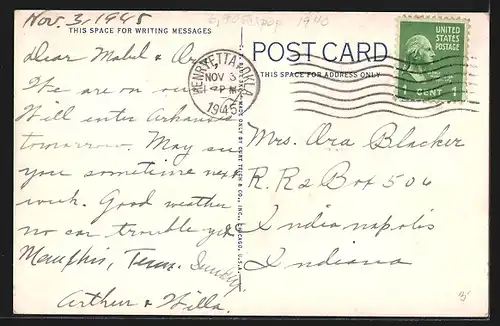 Nov. 3, 1945
THIS SPACE FOR WRITING MESSAGES
Dear Mabel & Ora
We are on our
Will enter Arkansas
tomorrow. May see
you sometime next
week. Good weather
no car trouble yet
Memphis, Tenn. Sunday
Arthur & Willa.
1940
POST CARD
THIS SPACE FOR ADDRESS ONLY
HENRYETTA, OKLA.
NOV 3
PM
1945
UNITED
STATES
POSTAGE
1 CENT 1
MADE ONLY BY CURT TEICH & CO., INC., CHICAGO, U.S.A.
Mrs. Ora Blacker
R. R 2 Box 506
Indianapolis
Indiana